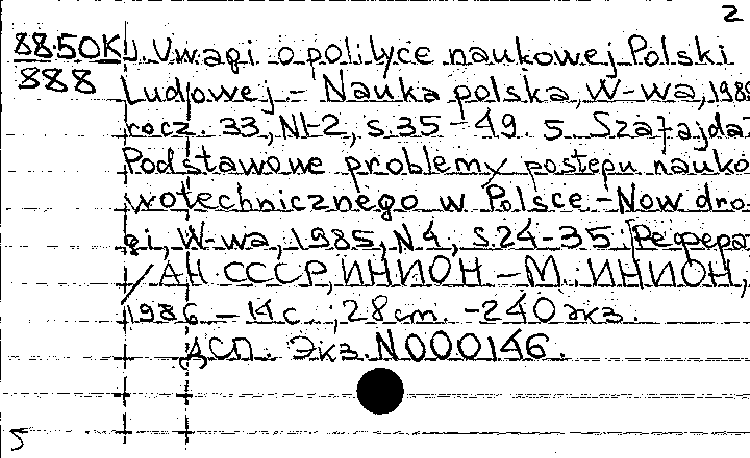 2
88.50K J. Uwagi o polityce naukowej Polski
888 Ludowej. - Nauka polska, W-wa, 1985
rocz. 33, N1-2, s.35-49. 5. Szafajda
Podstawowe problemy postępu nauko
wotechnicznego w Polsce. - Now dro
gi, W-wa, 1985, N4, S.24-35 [Реферат
/ АН СССР, ИНИОН. - М.: ИНИОН,
1986 - 14 с.; 28 cm. - 240 экз.
ДСП. Экз. N000146.
5